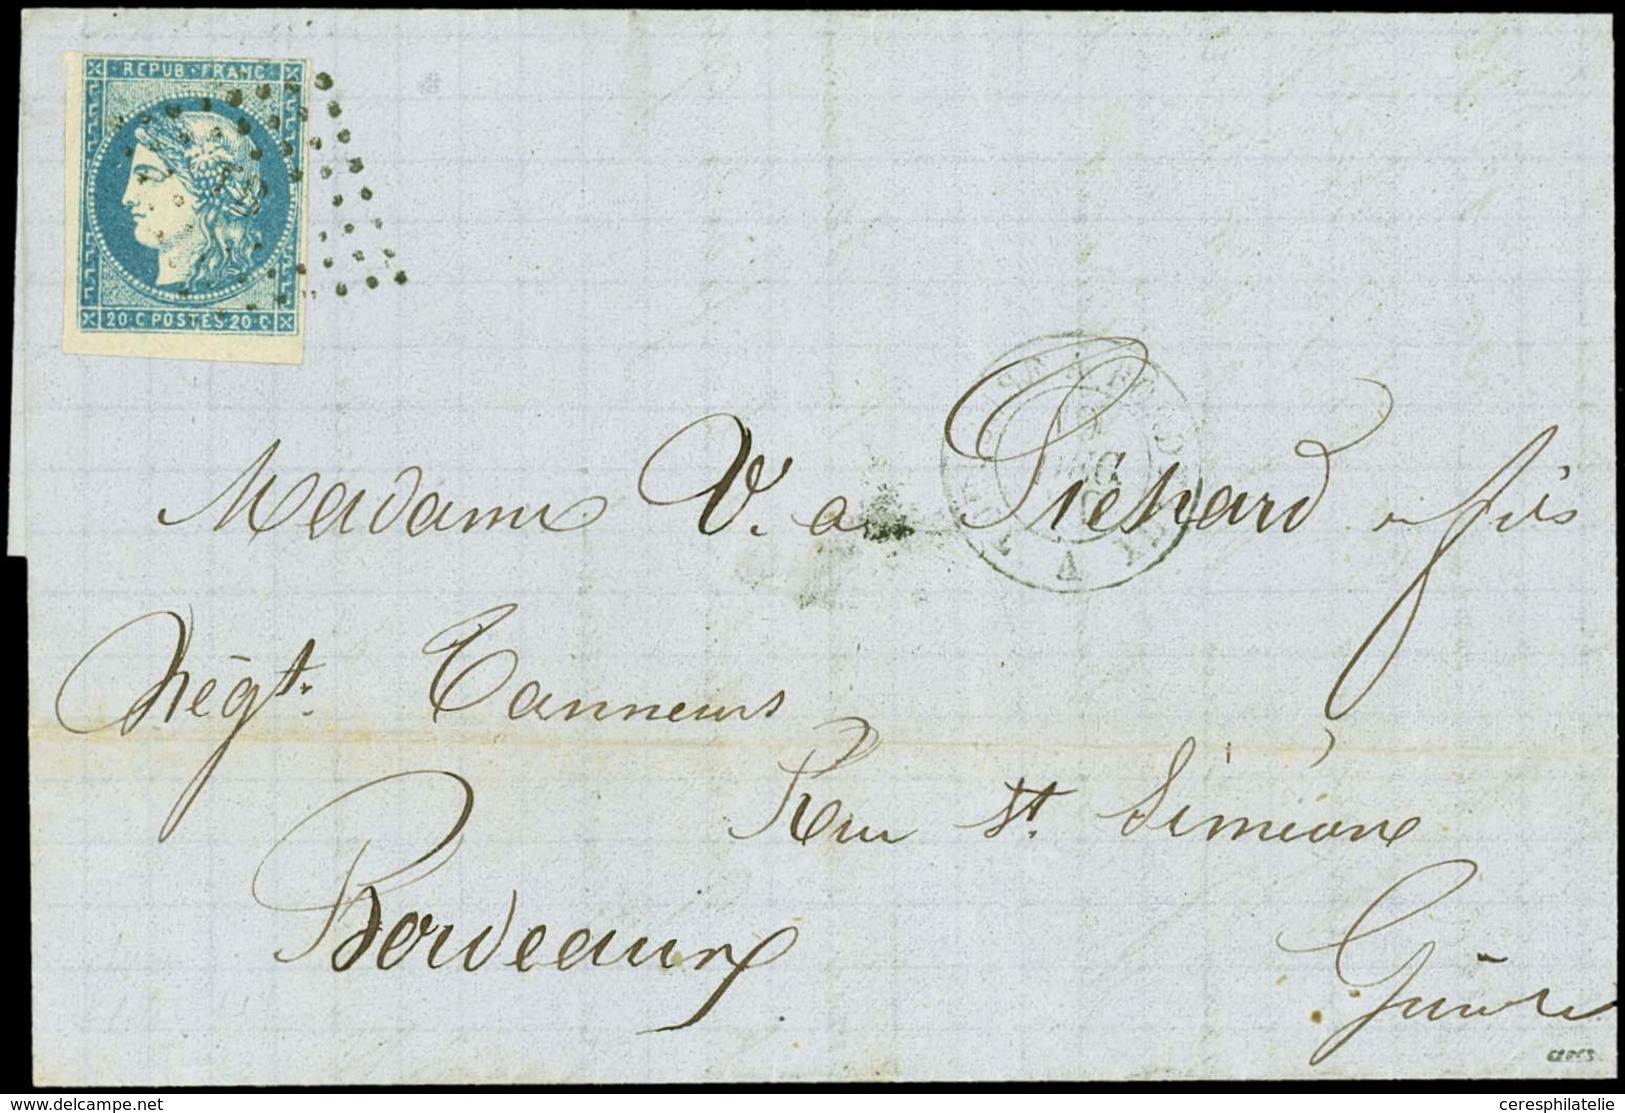 REPUB·FRANC
20·C POSTES·20·C
TOULOUSE A
A
Madame V. a Pichard & fils
Négts. Tanneurs
Rue St. Siméon
Bordeaux
Gironde
CERES
www.delcampe.net
ceresphilatelie